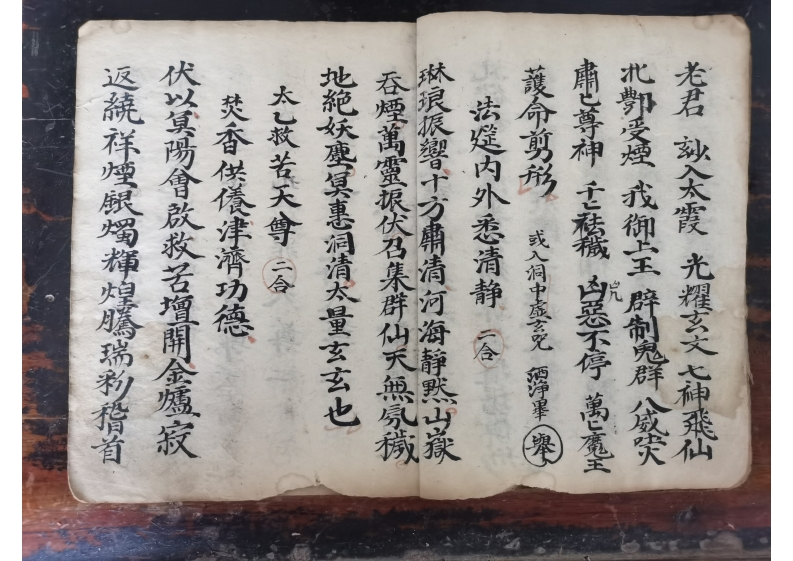 老君 玅入太霞 光耀玄文 七神飛仙
北酆受煙 我御上王 辟制鬼群 八威啖火
肅〻尊神 千〻祛穢 凶惡不停 萬〻魔王
護命剪形 或入洞中虛玄咒 洒淨畢 舉
法筵内外悉清静 二合
琳琅振響十方肅清河海静默山嶽
吞煙萬靈振伏召集群仙天無氛穢
地絶妖塵冥惠洞清太量玄玄也
太乙救苦天尊 二合
焚香供養津濟功德
伏以冥陽會啟救苦壇開金爐寂
返繞祥煙銀燭輝煌騰瑞彩稽首